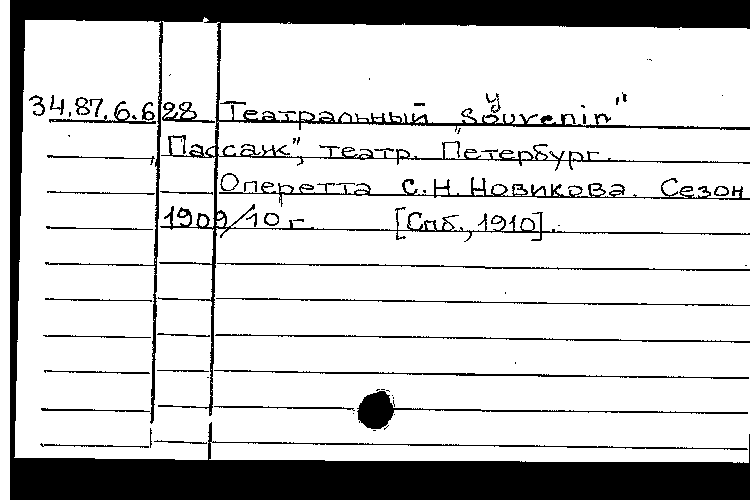 34.87.6.628 Театральный "Souvenir"
"Пассаж", театр. Петербург.
Оперетта С.Н. Новикова. Сезон
1909/10 г. [Спб., 1910].